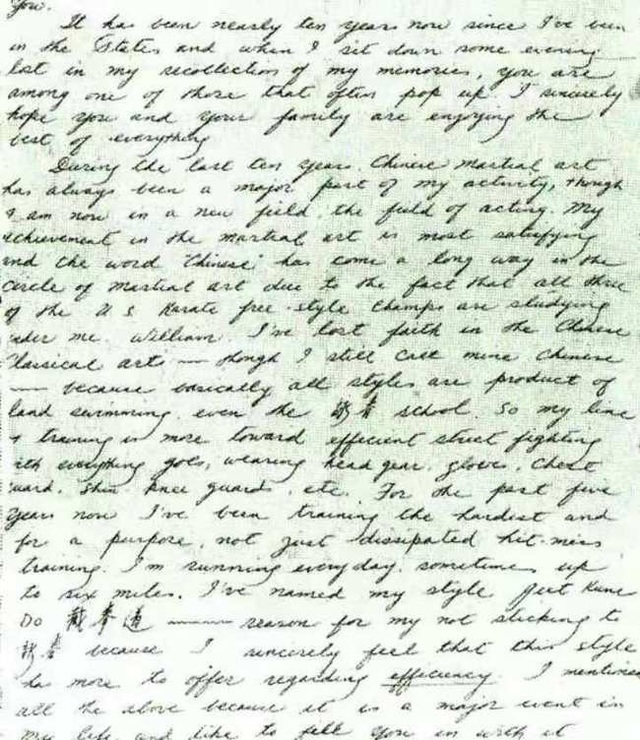 You.
It has been nearly ten years now since I've been
in the States and when I sit down some evening
lost in my recollection of my memories, you are
among one of those that often pop up. I sincerely
hope you and your family are enjoying the
best of everything
During the last ten years, Chinese martial art
has always been a major part of my activity, though
I am now in a new field, the field of acting. My
achievement in the martial art is most satisfying
and the word 'Chinese' has come a long way in the
circle of martial art due to the fact that all three
of the U S Karate free-style champs are studying
under me. William, I've lost faith in the Chinese
classical arts — though I still call mine Chinese
— because basically all styles are product of
land swimming, even the 詠春 school. So my line
of training is more toward efficient street fighting
with everything goes, wearing head gear, gloves, chest
guard, shin knee guard, etc. For the past five
years now I've been training the hardest and
for a purpose, not just dissipated hit-miss
training. I'm running every day, sometimes up
to six miles. I've named my style Jeet Kune
Do 截拳道 —— reason for my not sticking to
詠春 because I sincerely feel that this style
has more to offer regarding efficiency. I mention
all the above because it is a major event in
my life and like to fill you in with it